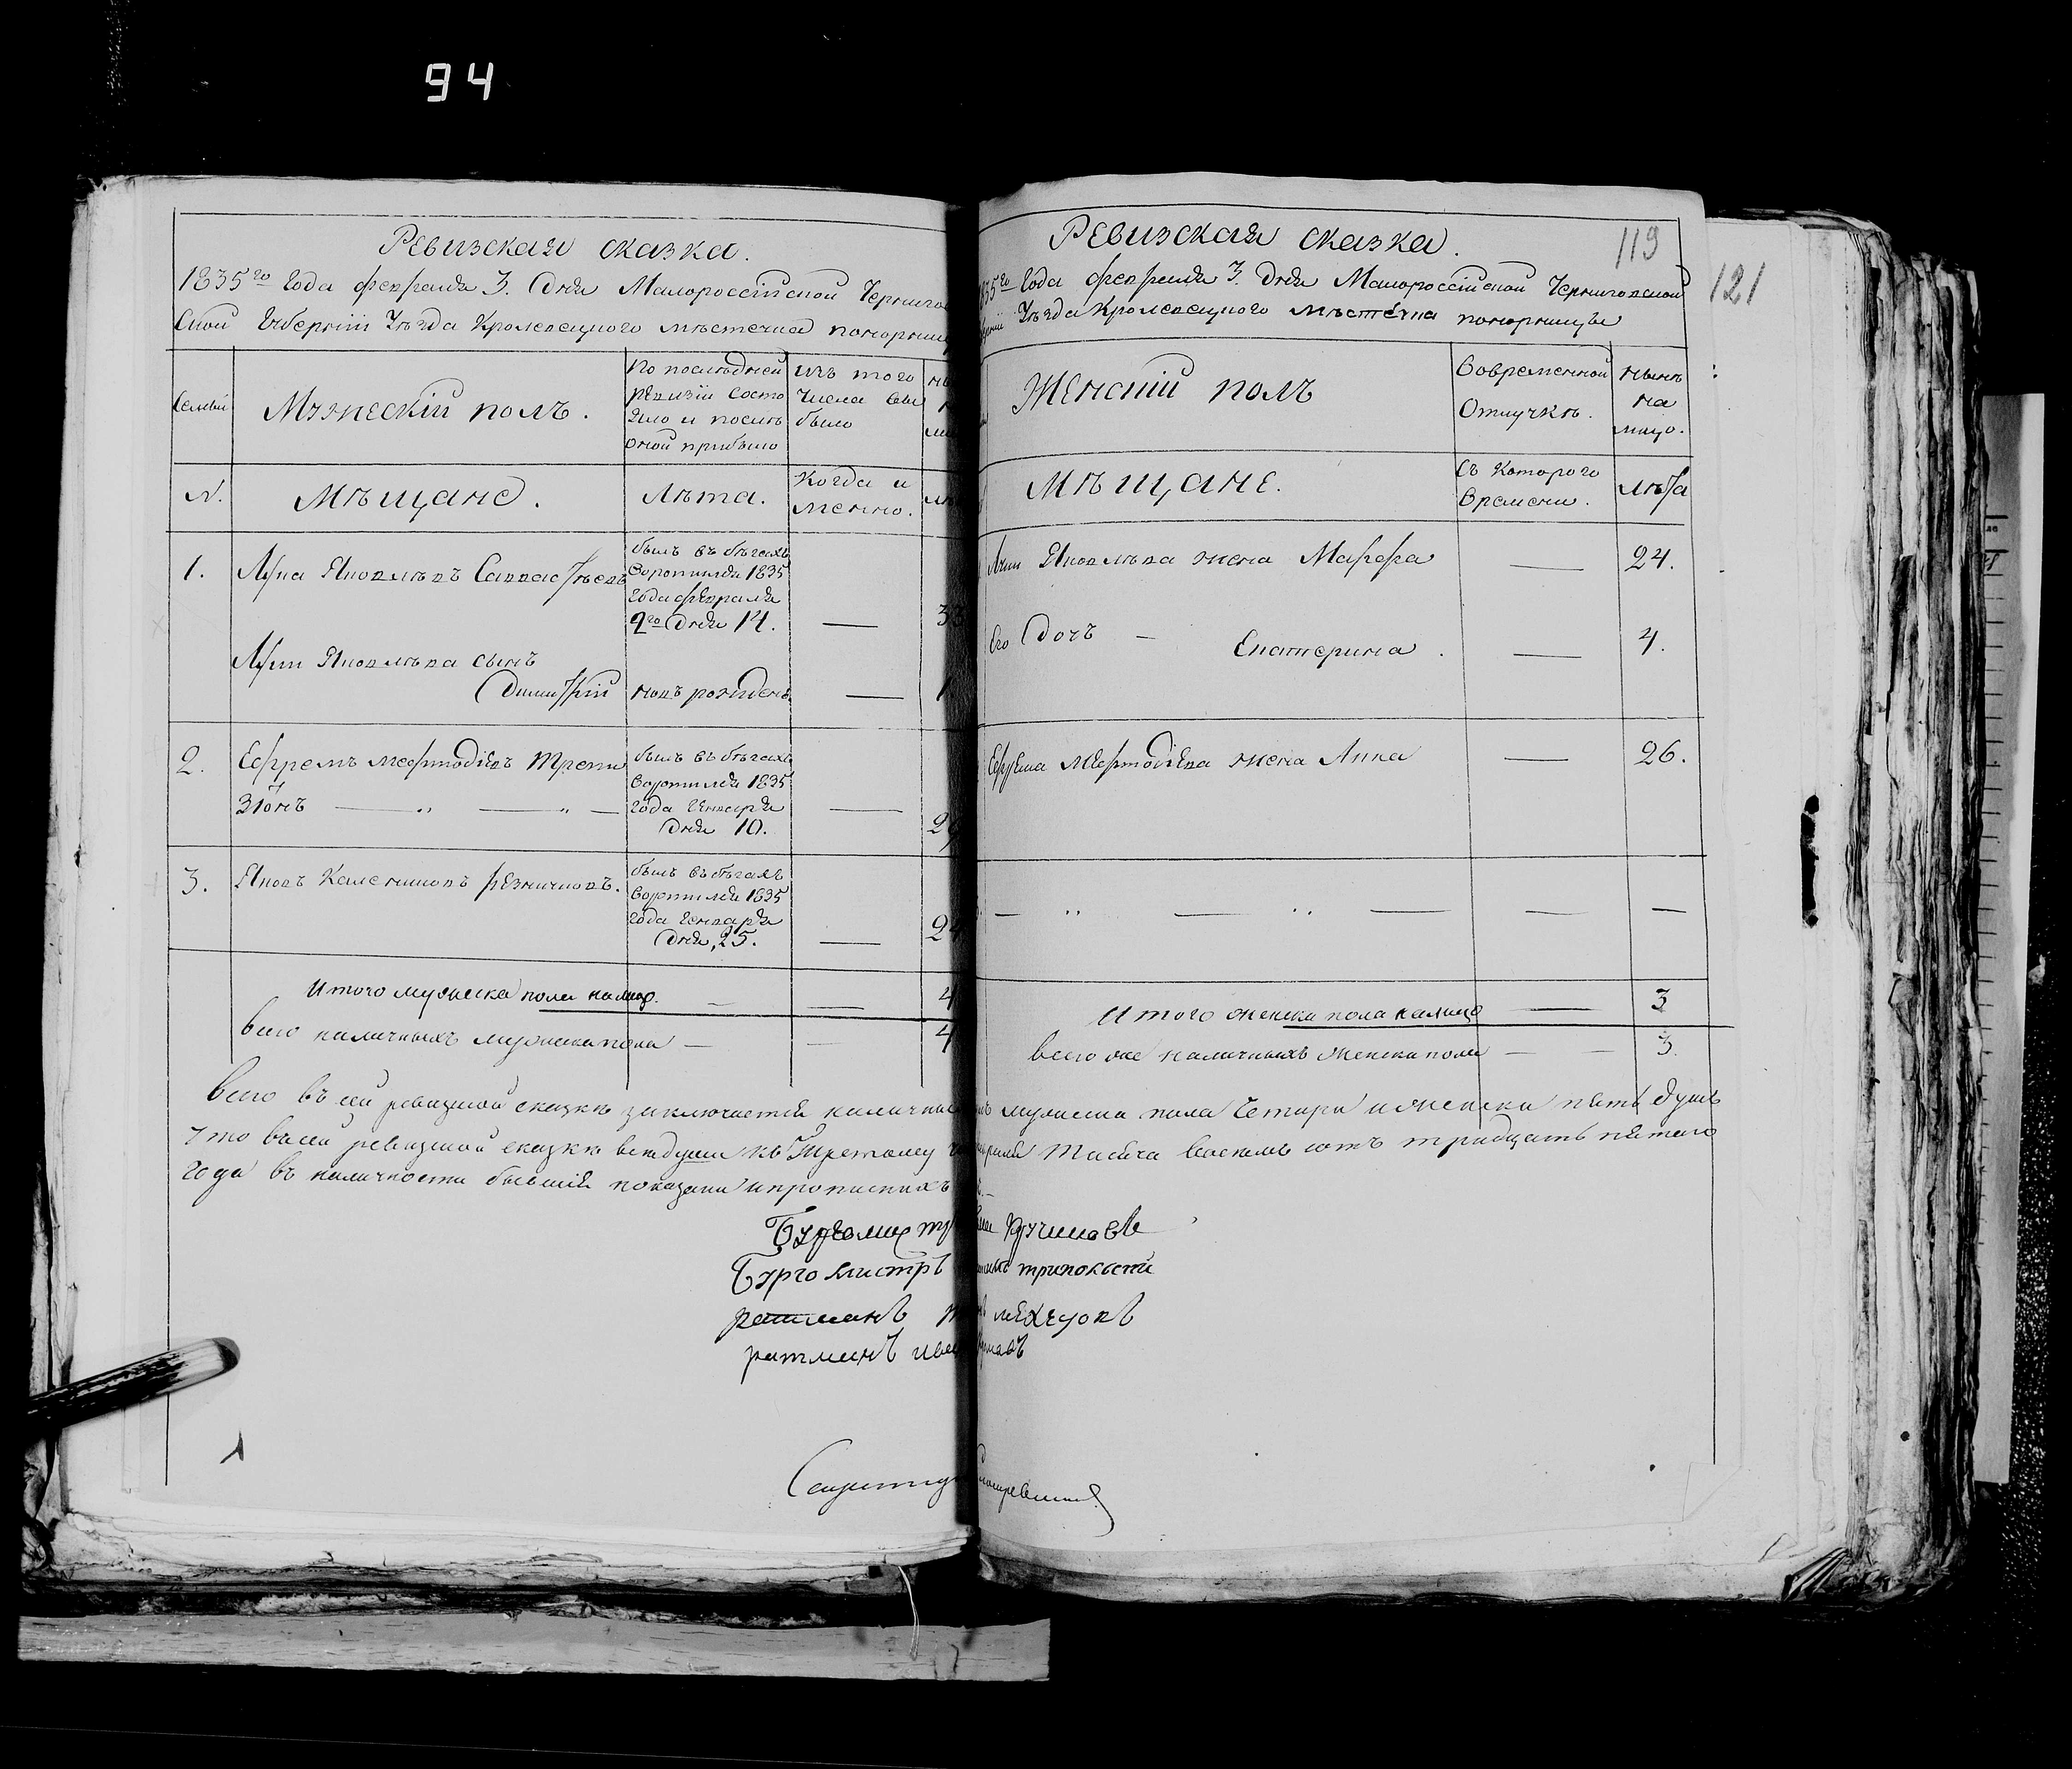 94
Ревизская сказка.
1835го Года февраля 3. Дня Малороссійской Чернигов
ской Губерніи Уѣзда Кролевецкого мѣстечка понорниц
Семьи
Мужескій полъ.
По послѣдней
ревизіи состо
яло и послѣ
оной прибыло
изъ того
числа вы
было
N.
Мѣщане.
Лѣта.
Когда и
менно.
1.
Яковлѣвъ Савва
былъ въ бѣгахъ
воротился 1835
года февраля
2го Дня 14.
33
Яковлѣва сынъ
Димитрій
новъ рожденъ
1
2.
Ефремъ мефтодіевъ
былъ въ бѣгахъ
воротился 1835
года Генваря
Дня 10.
3.
Яковъ Калениковъ резниковъ.
былъ въ бѣгахъ
воротился 1835
года Генваря
Дня, 25.
24
Итого мужеска пола налицо.
4
Всего наличныхъ мужеска пола
4
119
121
Ревизская сказка.
1835го Года февраля 3. Дня Малороссійской Черниговской
Уѣзда Кролевецкого мѣстечка понорницы
Женскій полъ
Вовременной
Отлучкѣ.
нынѣ
на
лицо.
Мѣщане.
съ Которого
времени.
лѣта
Яковлѣва жена Марфа
24.
Его Дочъ
Екатерина.
4.
Ефрема мефтодіева жена Анна
26.
Итого женска пола налицо
3
Всего же наличныхъ женска пола
3.
Всего въ сей ревизской сказкѣ заключается наличныхъ мужеска пола Четыри и женска пять душъ
Что въ сей ревизской сказкѣ всѣ души къ Третому Тисяча восемъ сотъ тридцать пятого
года въ наличности бывшія показани и прописнихъ
Бургомистръ
Бургомистръ
ратманъ
ратманъ